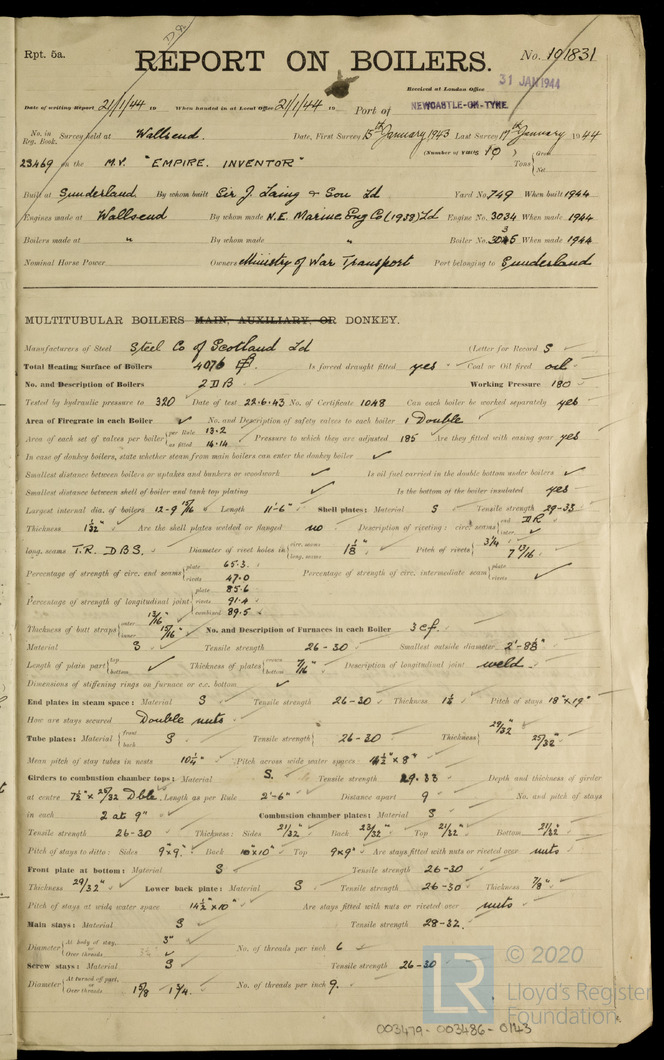 Rpt. 5a.
REPORT ON BOILERS.
No. 101831
Received at London Office
31 JAN 1944
Date of writing Report 21/1/44 19 When handed in at Local Office 21/1/44 19 Port of NEWCASTLE-ON-TYNE
No. in Reg. Book. Survey held at Wallsend. Date, First Survey 15th January 1943 Last Survey 17th January 1944
(Number of Visits 10) Tons Gross Net
23469 on the M.V. "EMPIRE INVENTOR"
Built at Sunderland By whom built Sir J. Laing & Son Ld Yard No. 749 When built 1944
Engines made at Wallsend By whom made N.E. Marine Eng Co (1938) Ld Engine No. 3034 When made 1944
Boilers made at " By whom made " Boiler No. 3035 When made 1944
Nominal Horse Power Owners Ministry of War Transport Port belonging to Sunderland
MULTITUBULAR BOILERS MAIN, AUXILIARY, OR DONKEY.
Manufacturers of Steel Steel Co of Scotland Ld (Letter for Record S
Total Heating Surface of Boilers 4076 Is forced draught fitted yes Coal or Oil fired oil
No. and Description of Boilers 2 D B Working Pressure 180
Tested by hydraulic pressure to 320 Date of test 22.6.43 No. of Certificate 1048 Can each boiler be worked separately yes
Area of Firegrate in each Boiler ✓ No. and Description of safety valves to each boiler 1 Double
Area of each set of valves per boiler per Rule 13.2 as fitted 14.14 Pressure to which they are adjusted 185 Are they fitted with easing gear yes
In case of donkey boilers, state whether steam from main boilers can enter the donkey boiler ✓
Smallest distance between boilers or uptakes and bunkers or woodwork ✓ Is oil fuel carried in the double bottom under boilers ✓
Smallest distance between shell of boiler and tank top plating ✓ Is the bottom of the boiler insulated yes
Largest internal dia. of boilers 12-9 15/16 Length 11'-6" Shell plates: Material S Tensile strength 29-33
Thickness 1 1/32" Are the shell plates welded or flanged no Description of riveting: circ. seams end DR inter. ✓
long. seams T.R. D.B.S. Diameter of rivet holes in circ. seams long. seams 1 1/8" Pitch of rivets 3 1/4 7 13/16"
Percentage of strength of circ. end seams plate 65.3 rivets 47.0 Percentage of strength of circ. intermediate seam plate rivets ✓
Percentage of strength of longitudinal joint plate 85.6 rivets 91.4 combined 89.5
Thickness of butt straps outer 13/16" inner 15/16" No. and Description of Furnaces in each Boiler 3 cf.
Material S Tensile strength 26-30 Smallest outside diameter
Length of plain part top bottom ✓ Thickness of plates crown bottom 7/16" Description of longitudinal joint weld
Dimensions of stiffening rings on furnace or c.c. bottom ✓
End plates in steam space: Material S Tensile strength 26-30 Thickness 1 1/8 Pitch of stays 18"x19"
How are stays secured Double nuts
Tube plates: Material front back S Tensile strength 26-30 Thickness 29/32" 25/32"
Mean pitch of stay tubes in nests 10 1/4" Pitch across wide water spaces 14 1/2" x 8"
Girders to combustion chamber tops: Material S. Tensile strength 29.33 Depth and thickness of girder
at centre 7 1/2" x 25/32 Dble. Length as per Rule 2'-6" Distance apart 9 No. and pitch of stays
in each 2 at 9" Combustion chamber plates: Material S
Tensile strength 26-30 Thickness: Sides 21/32" Back 23/32" Top 21/32" Bottom 21/32"
Pitch of stays to ditto: Sides 9"x9" Back 10"x10" Top 9x9" Are stays fitted with nuts or riveted over nuts
Front plate at bottom: Material S Tensile strength 26-30
Thickness 29/32" Lower back plate: Material S Tensile strength 26-30 Thickness 7/8"
Pitch of stays at wide water space 14 1/2" x 10" Are stays fitted with nuts or riveted over nuts
Main stays: Material S Tensile strength 28-32.
Diameter At body of stay, or Over threads 3" No. of threads per inch 6
Screw stays: Material S Tensile strength 26-30
Diameter At turned off part, or Over threads 1 5/8 1 3/4. No. of threads per inch 9.
© 2020
LR Lloyd's Register
Foundation
003479-003486-0143